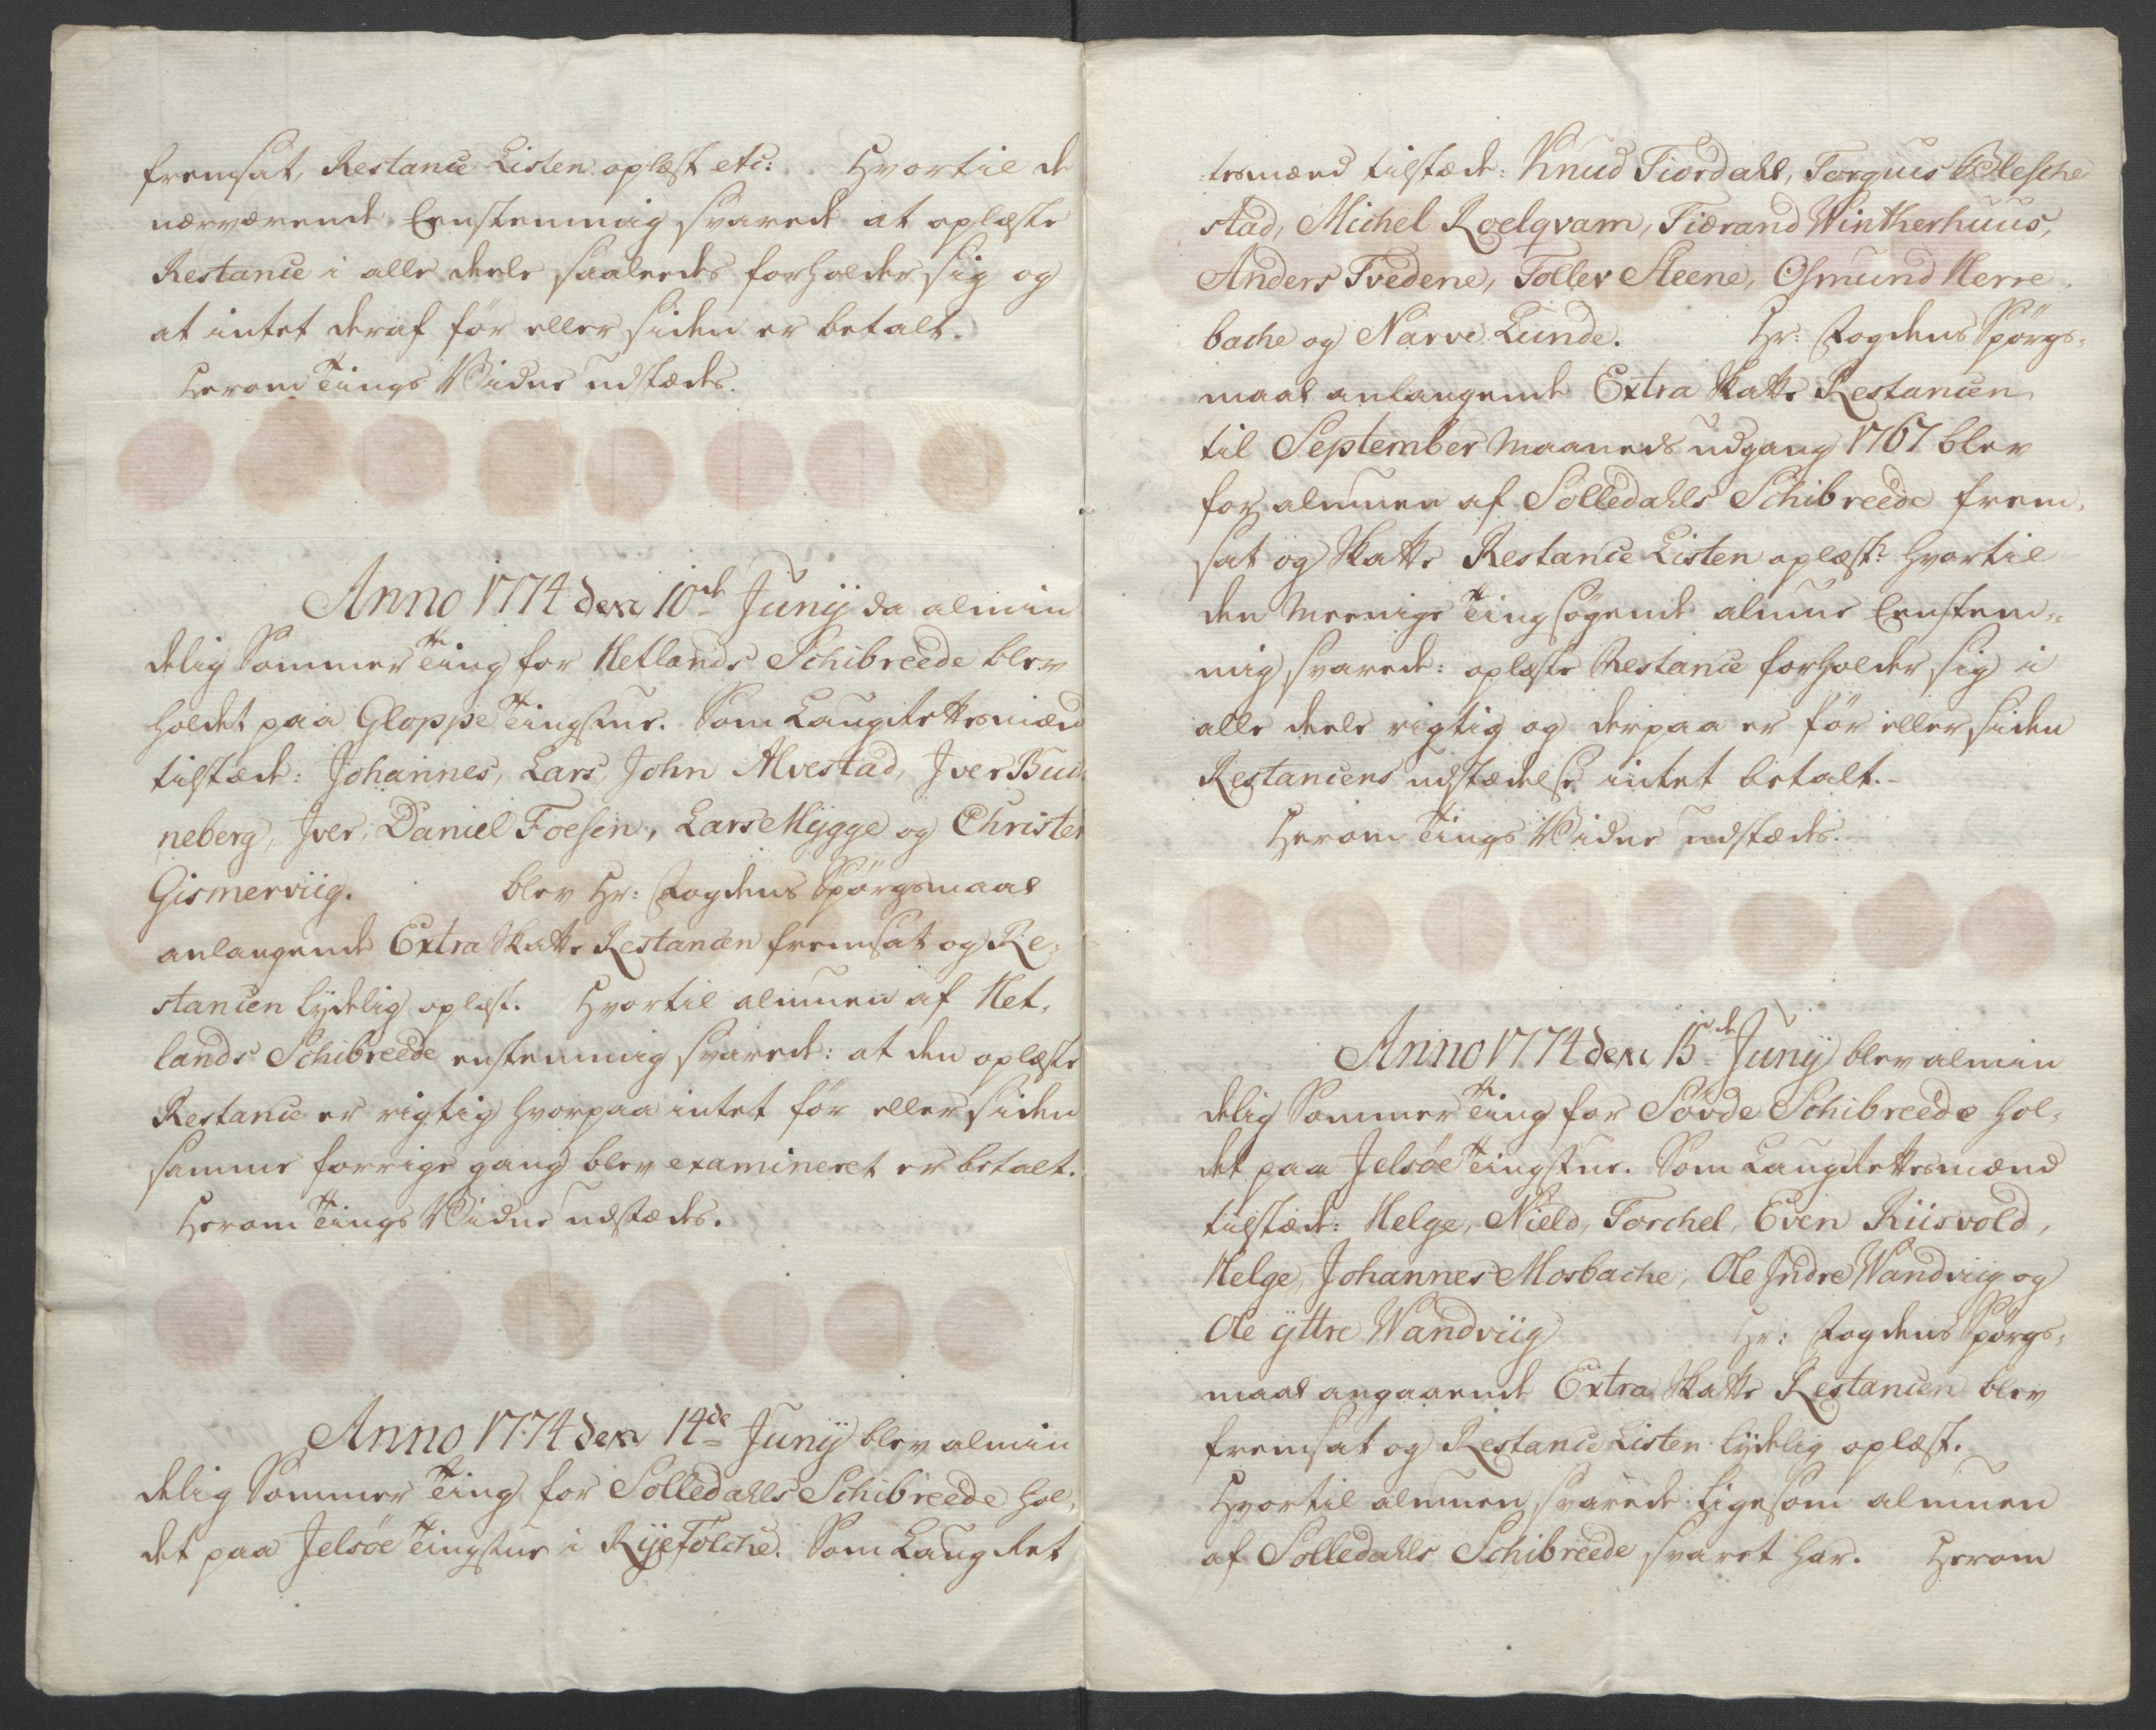 fremsat, Restance Listen oplæst etc: Hvortil de
nærværende Eenstemmig svarede at oplæste
Restance i alle deele saaleedes forholder sig og
at intet deraf før eller siden er betalt.
Herom Tings Vidne udstædes.
Anno 1774 den 10de Junij da almin
delig Sommer Ting for Hetlands Schibreede blev
holdet paa Gloppe Tingstue. Som Laugrettesmænd
tilstæde: Johannes, Lars, John Alvestad, Iver Bud
neberg, Iver, Daniel Foesen, Lars Mygge og Christen
Gismerviig. blev Hr: Fogdens Spørgsmaal
anlangende Extra Skatte Restancen fremsat og Re-
stancen lydelig oplæst. Hvortil almuen af Het-
lands Schibreede enstemmig svarede: at den oplæste
Restance er rigtig hvorpaa intet før eller siden
samme forrige gang blev examineret er betalt.
Herom Tings Vidne udstædes.
Anno 1774 den 14de Junij blev almin
delig Sommer Ting for Solledahls Schibreede hol-
det paa Jelsøe Tingstue i Ryefølche. Som Laugret
tesmænd tilstæde: Knud Fiordahl, Torgius Blesche
stad, Michel Roelqvam, Tiærand Wintherhuus,
Anders Tvedene, Tollev Steene, Osmund Herre-
bache og Narve Lunde. Hr: Fogdens Spørgs-
maal anlangende Extra Skatte Restancen
til September Maaneds udgang 1767 blev
for almuen af Solledahls Schibreede frem-
sat og Skatte Restance Listen oplæst: hvortil
den Meenige Ting søgende almue Eenstem-
mig svarede: oplæste Restance forholder sig i
alle deele rigtig og derpaa er før eller siden
Restancens udstædelse intet betalt.
Herom Tings Vidne udstædes.
Anno 1774 den 15de Junij blev almin
delig Sommer Ting for Søvde Schibreede hol-
det paa Jelsøe Tingstue. Som Laugrettesmænd
tilstæde: Helge, Nield, Torchel, Even Riisvold,
Helge, Johannes Mosbache, Ole Indre Wandviig og
Ole yttre Wandviig Hr: Fogdens Spørgs-
maal angaaende Extra Skatte Restancen blev
fremsat og Restance Listen lydelig oplæst.
Hvortil almuen svarede ligesom almuen
af Solledahls Schibreede svaret har. Herom